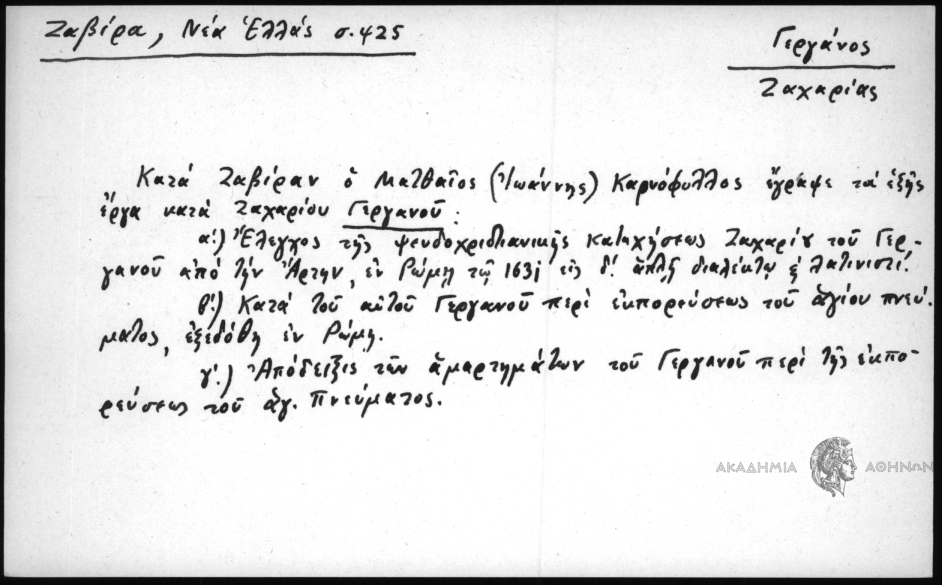 Ζαβίρα, Νέα Ἑλλάς σ. 425
Γεργάνος
Ζαχαρίας
Κατά Ζαβίραν ὁ Ματθαῖος (Ἰωάννης) Καρυόφυλλος ἔγραψε τά ἑξῆς
ἔργα κατά Ζαχαρίου Γεργανοῦ:
α΄.) Ἔλεγχος τῆς ψευδοχριστιανικῆς κατηχήσεως Ζαχαρίου τοῦ Γερ-
γανοῦ ἀπό τήν Ἄρτην, ἐν Ρώμῃ τῷ 1631 εἰς δ΄. ἁπλῇ διαλέκτῳ & λατινιστί.
β΄.) Κατά τοῦ αὐτοῦ Γεργανοῦ περί ἐκπορεύσεως τοῦ ἁγίου πνεύ-
ματος, ἐξεδόθη ἐν Ρώμῃ.
γ΄.) Ἀπόδειξις τῶν ἁμαρτημάτων τοῦ Γεργανοῦ περί τῆς ἐκπο-
ρεύσεως τοῦ ἁγ. Πνεύματος.
ΑΚΑΔΗΜΙΑ ΑΘΗΝΩΝ